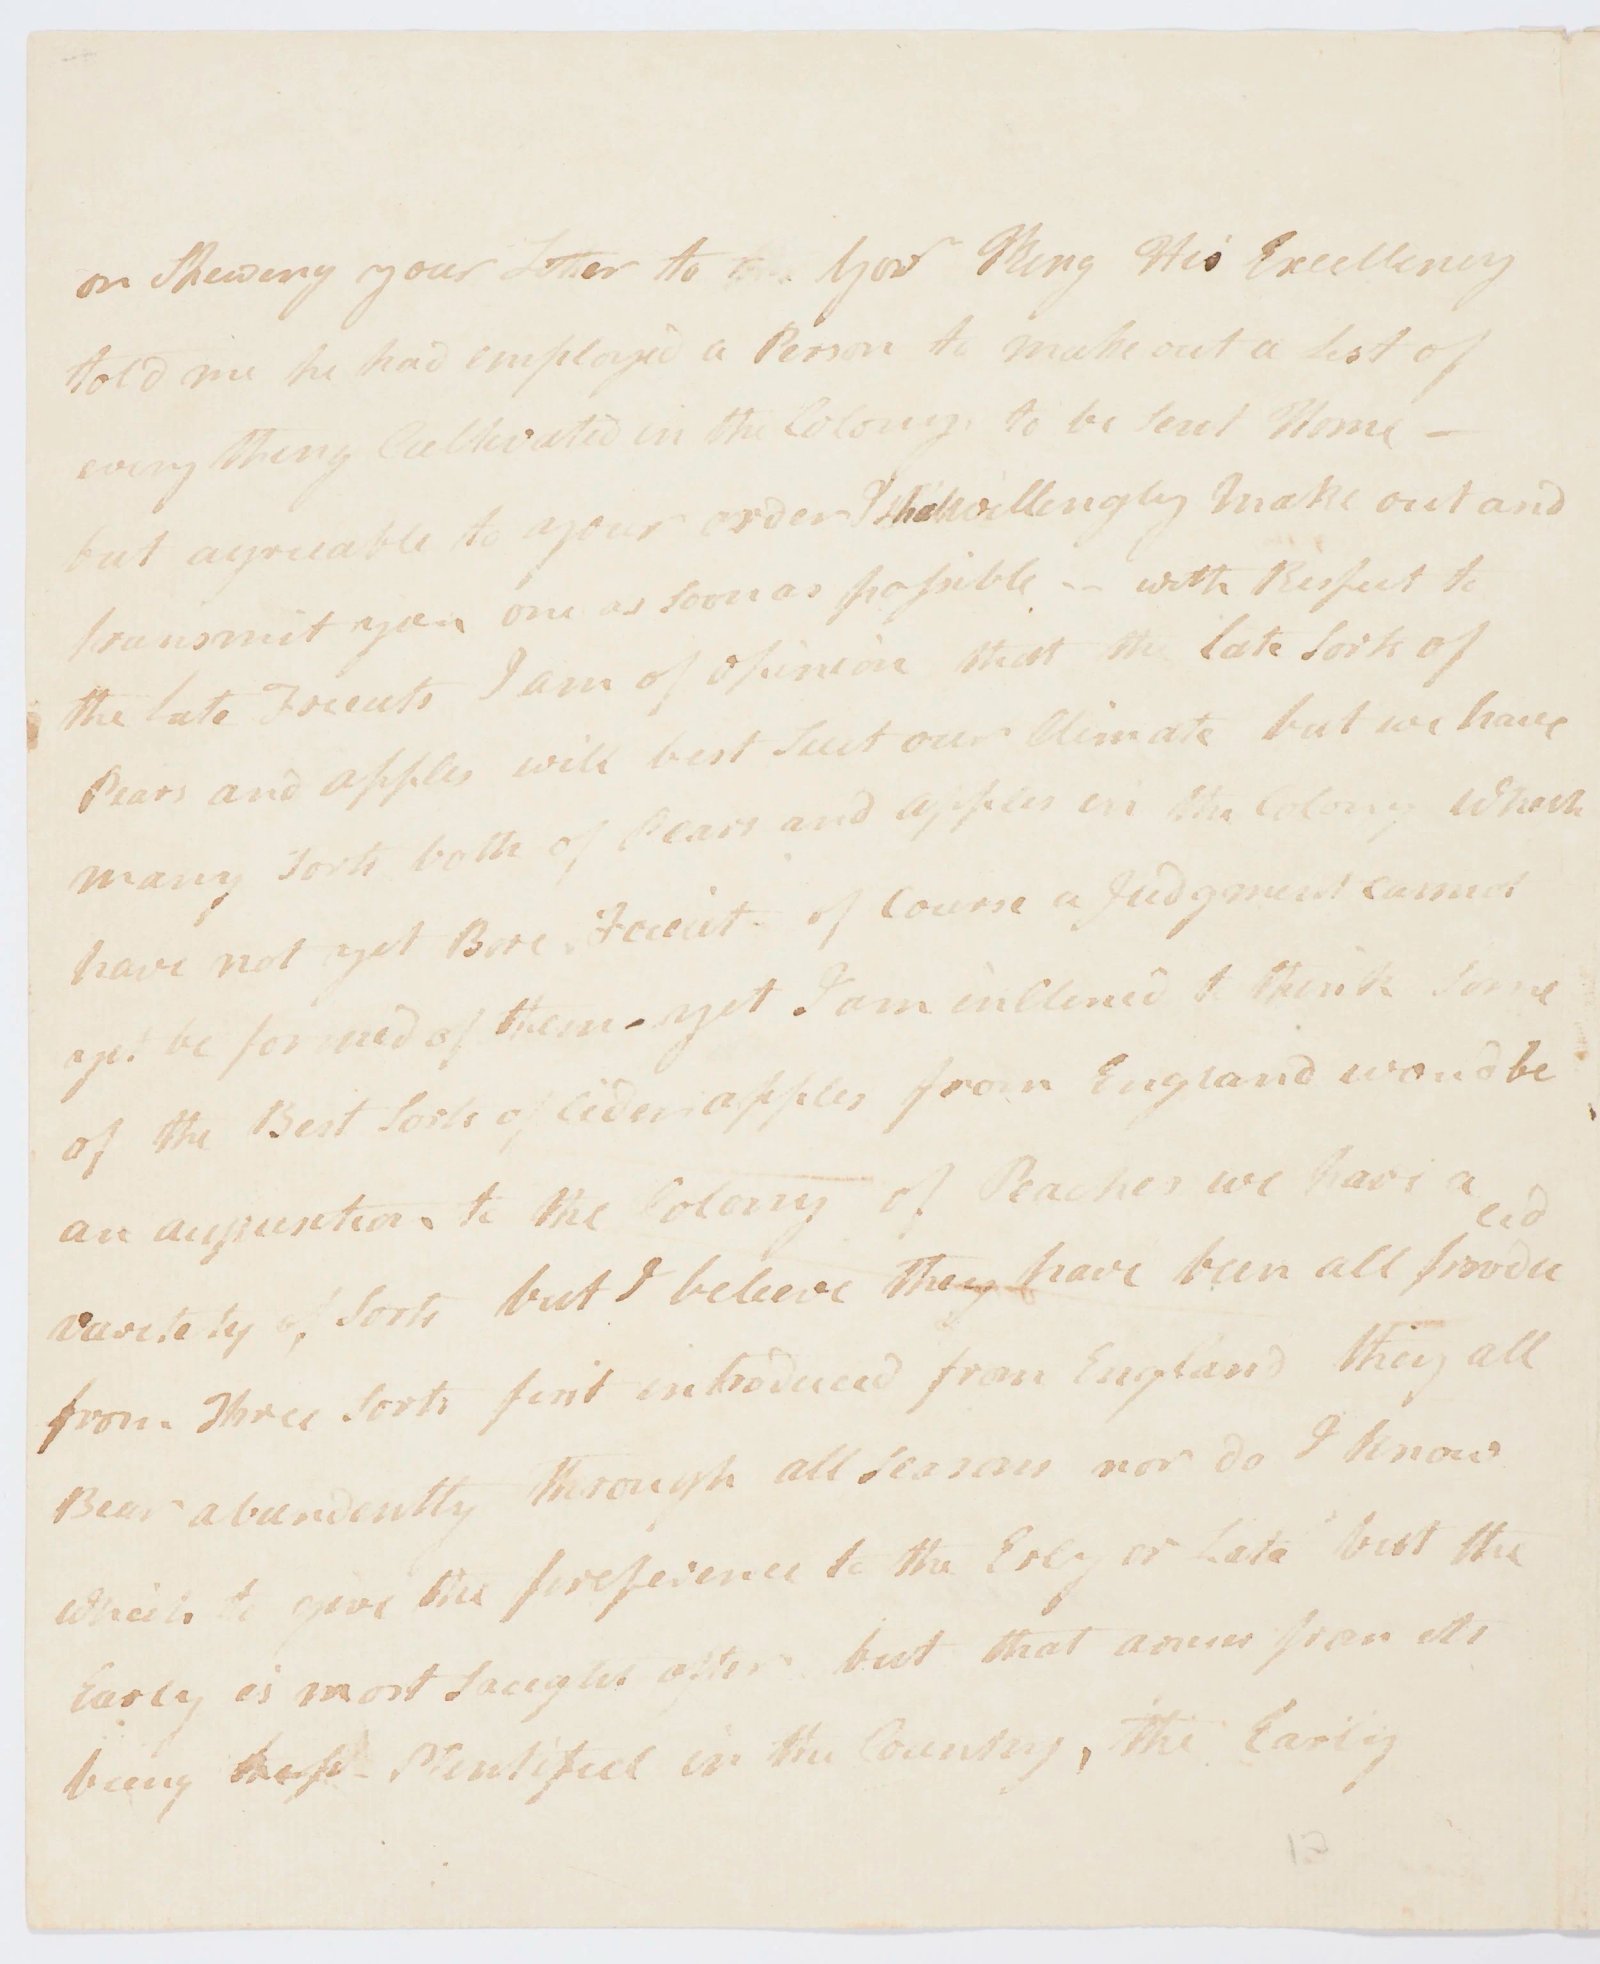 on Shewing your Letter to Govr King His Excellency
told me he had employed a Person to make out a List of
every thing Cultivated in the Colony, to be Sent Home —
but agreeable to your order I Shall willingly make out and
transmit you one as soon as possible -- with Respect to
the late Fruits I am of opinion that the late Sorts of
Pears and apples will best Suit our Climate but we have
many Sorts both of Pears and apples in the Colony which
have not yet Bore Fruit - of Course a Judgment cannot
yet be formed of them - yet I am inclined to think Some
of the Best Sorts of Cider apples from England woud be
an aquisition to the Colony of Peaches we have a
varietety of Sorts but I beleive they have been all produ
ced
from Three Sorts first introduced from England they all
Bear abundently through all Seasons nor do I know
which to give the preference to the Erly or Late but the
Early is most Saught after but that arises from its
being less Plentifull in the Country, the Earliy
13